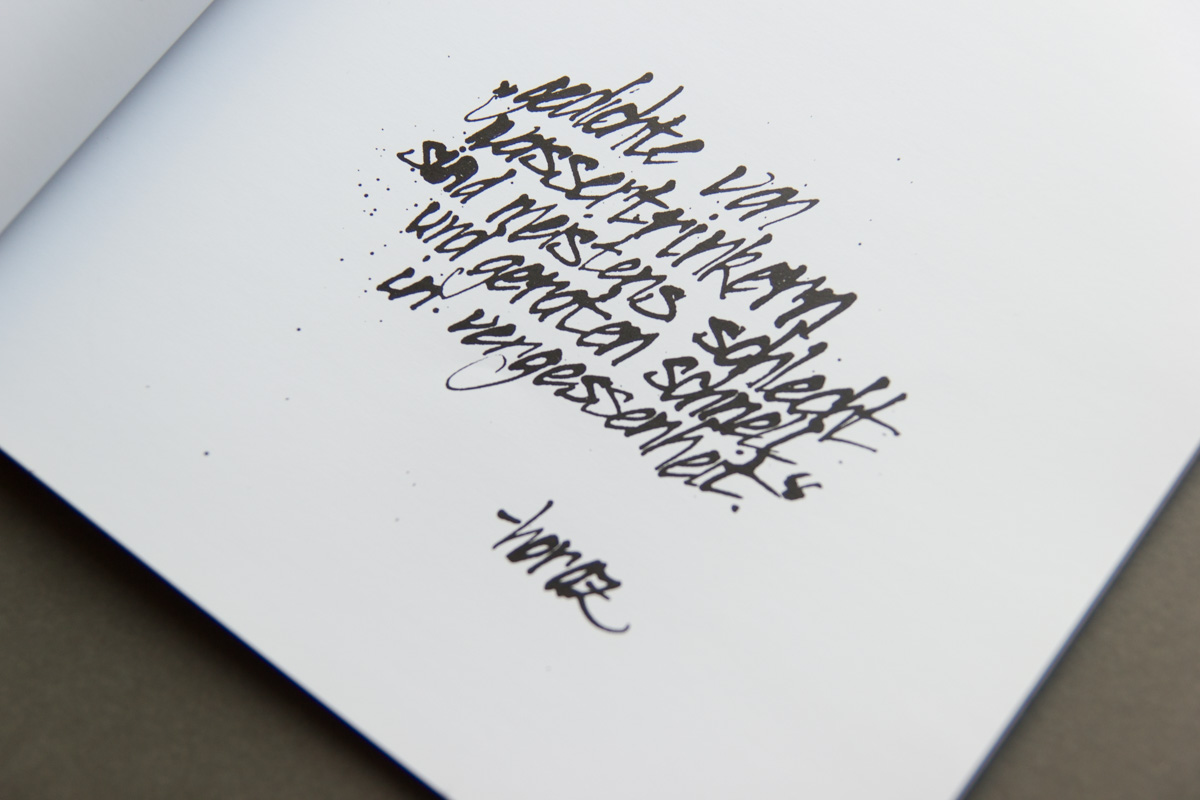 „gedichte von
wassertrinkern
sind meistens schlecht
und geraten schnell
in vergessenheit.“
-horaz